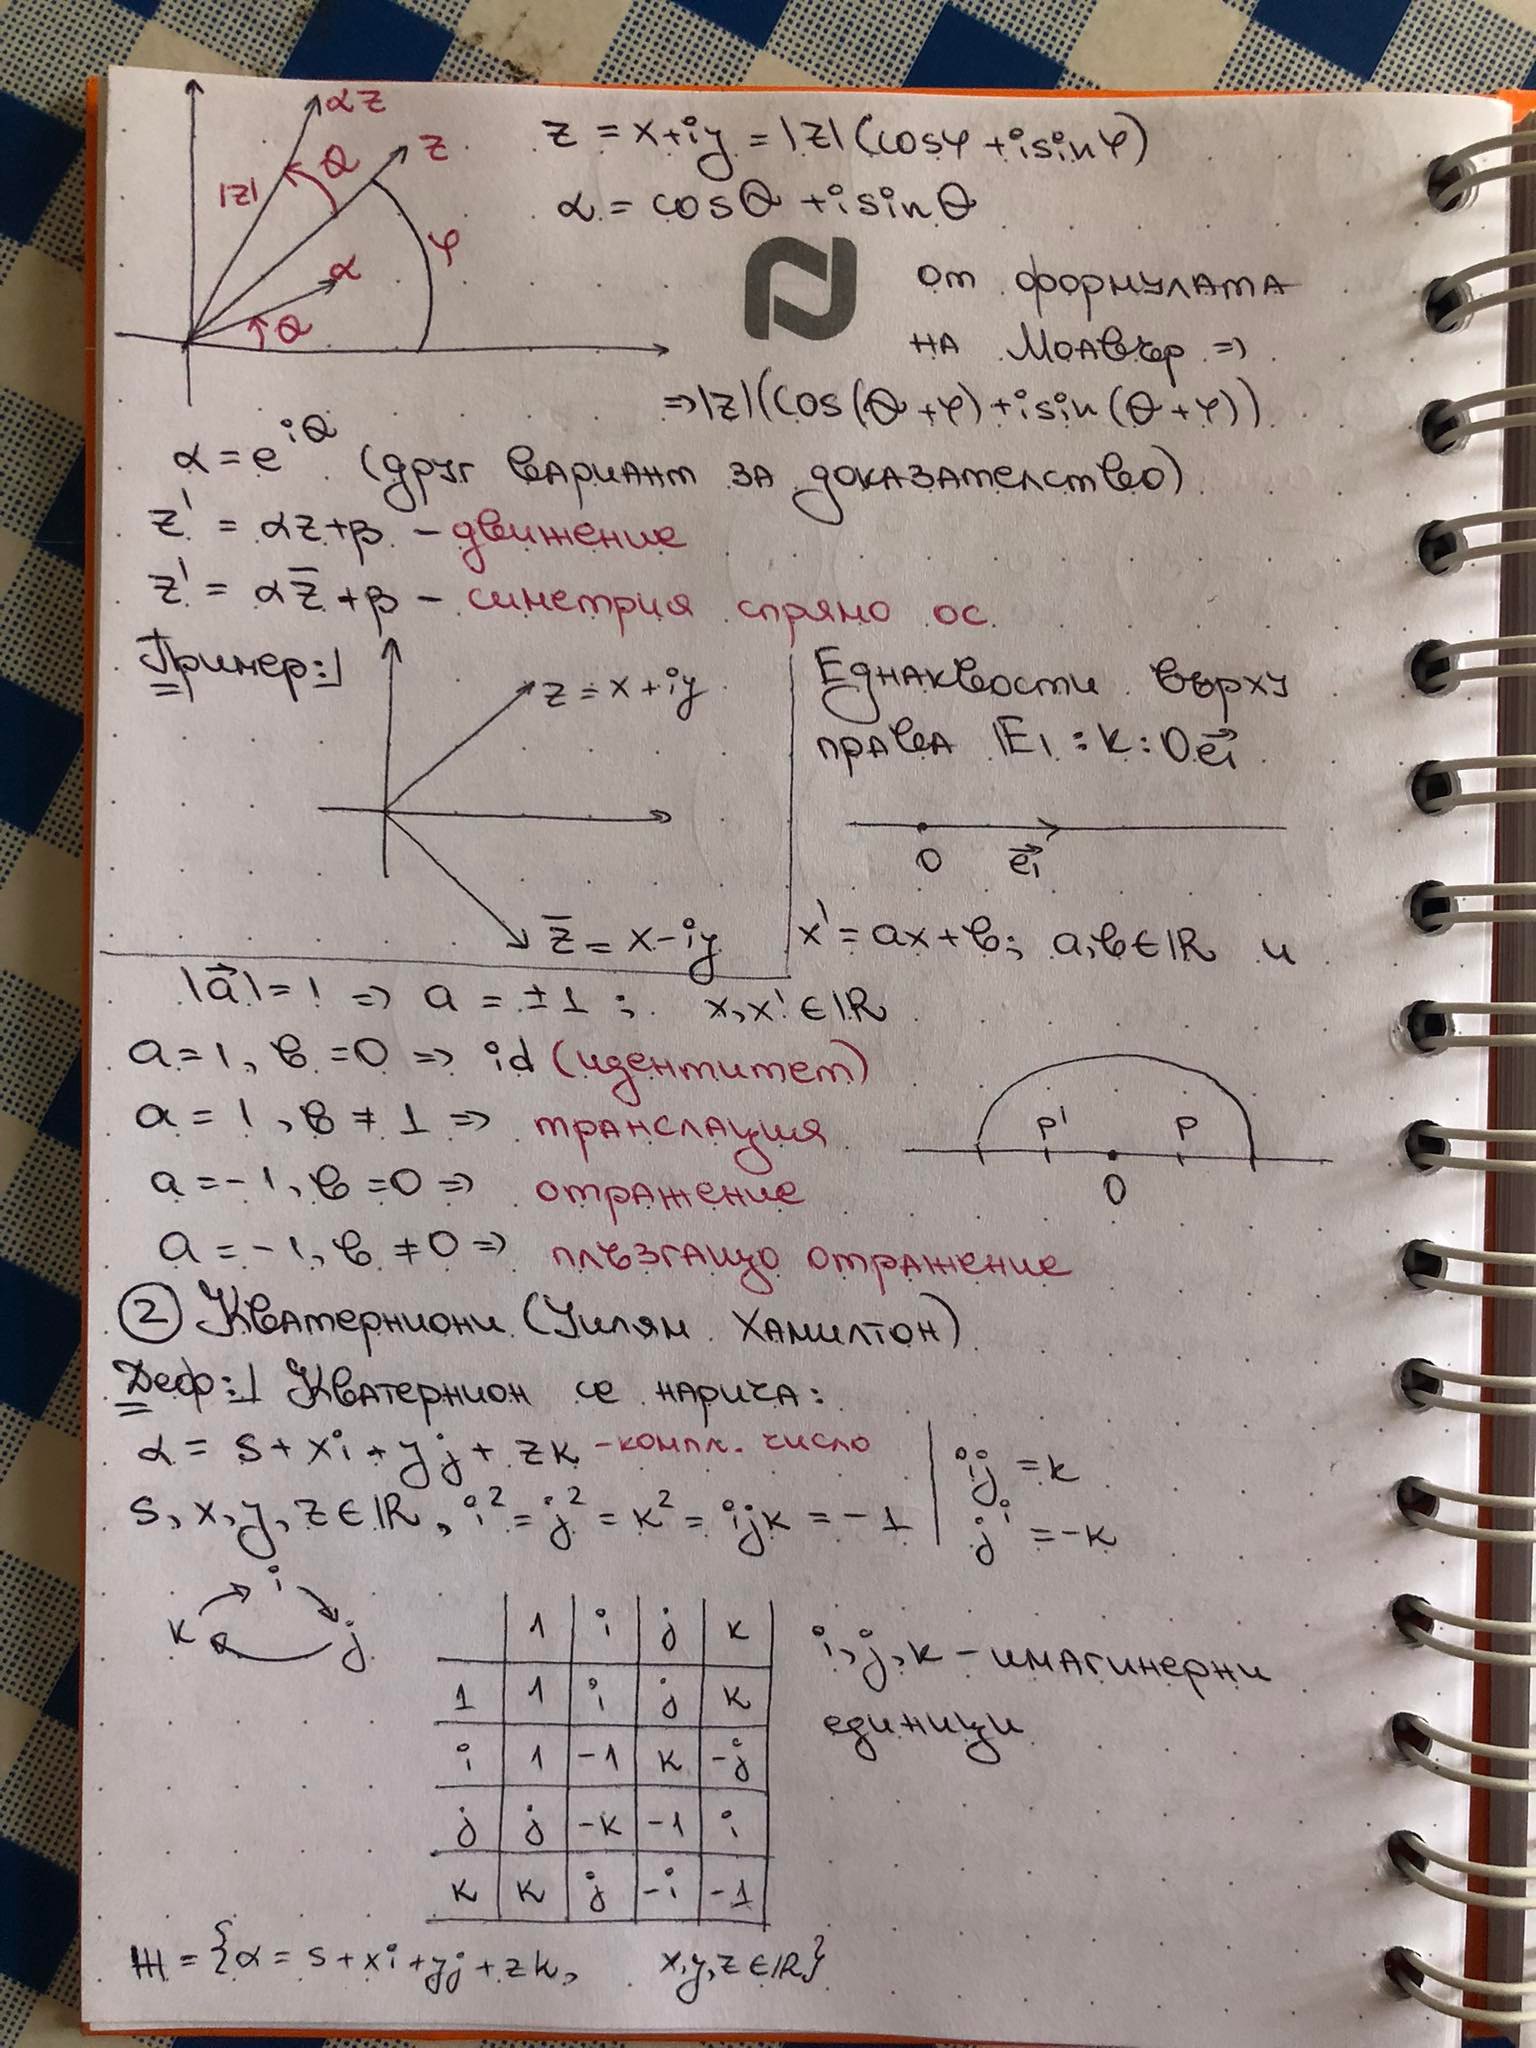 αz
z
|z|
θ
φ
α
θ
z = x+iy = |z|(cosφ + isinφ)
α = cosθ + isinθ
от формулата
на Моавър =>
=> |z|(cos(θ+φ) + isin(θ+φ))
α = e^{iθ} (друг вариант за доказателство)
z' = αz+β - движение
z' = αz̅+β - симетрия спрямо ос
Пример:
z = x+iy
z̅ = x-iy
Еднаквости върху
права E₁ : K : Oe⃗₁
O e⃗₁
x' = ax+b; a,b∈ℝ и
|a⃗| = 1 => a = ±1; x,x'∈ℝ
a=1, b=0 => id (идентитет)
a=1, b≠1 => транслация
a=-1, b=0 => отражение
a=-1, b≠0 => плъзгащо отражение
P' P
O
② Кватерниони (Уилям Хамилтон)
Деф: Кватернион се нарича:
α = s+xi+yj+zk - компл. число
s,x,y,z∈ℝ, i²=j²=k²=ijk=-1
ij=k
ji=-k
i
k j
1 i j k
1 1 i j k
i 1 -1 k -j
j j -k -1 i
k k j -i -1
i,j,k - имагинерни
единици
ℍ = {α = s+xi+yj+zk, x,y,z∈ℝ}